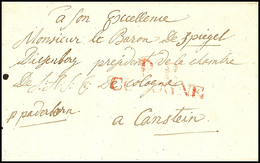 a Son Excellence
Monsieur le Baron de Spiegel
president de la chambre
de Cologne
COLOGNE
p paderborn
a Canstein